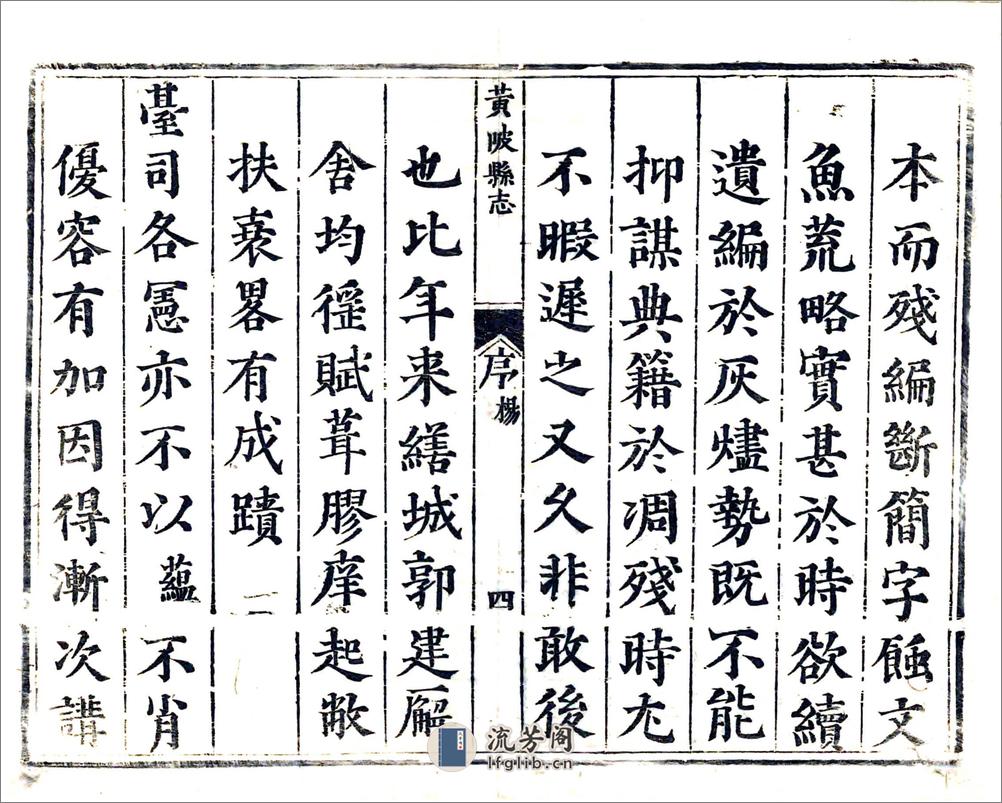 本而殘編斷簡字蝕文
魚荒略實甚於時欲續
遺編於灰燼勢既不能
抑謀典籍於凋殘時尢
不暇遲之又久非敢後
黃陂縣志
序楊
四
也比年来繕城郭建廨
舍均徭賦葺膠庠起敝
扶衰畧有成蹟
臺司各憲亦不以蘊不肖
優容有加因得漸次講
流芳阁
lfglib.cn